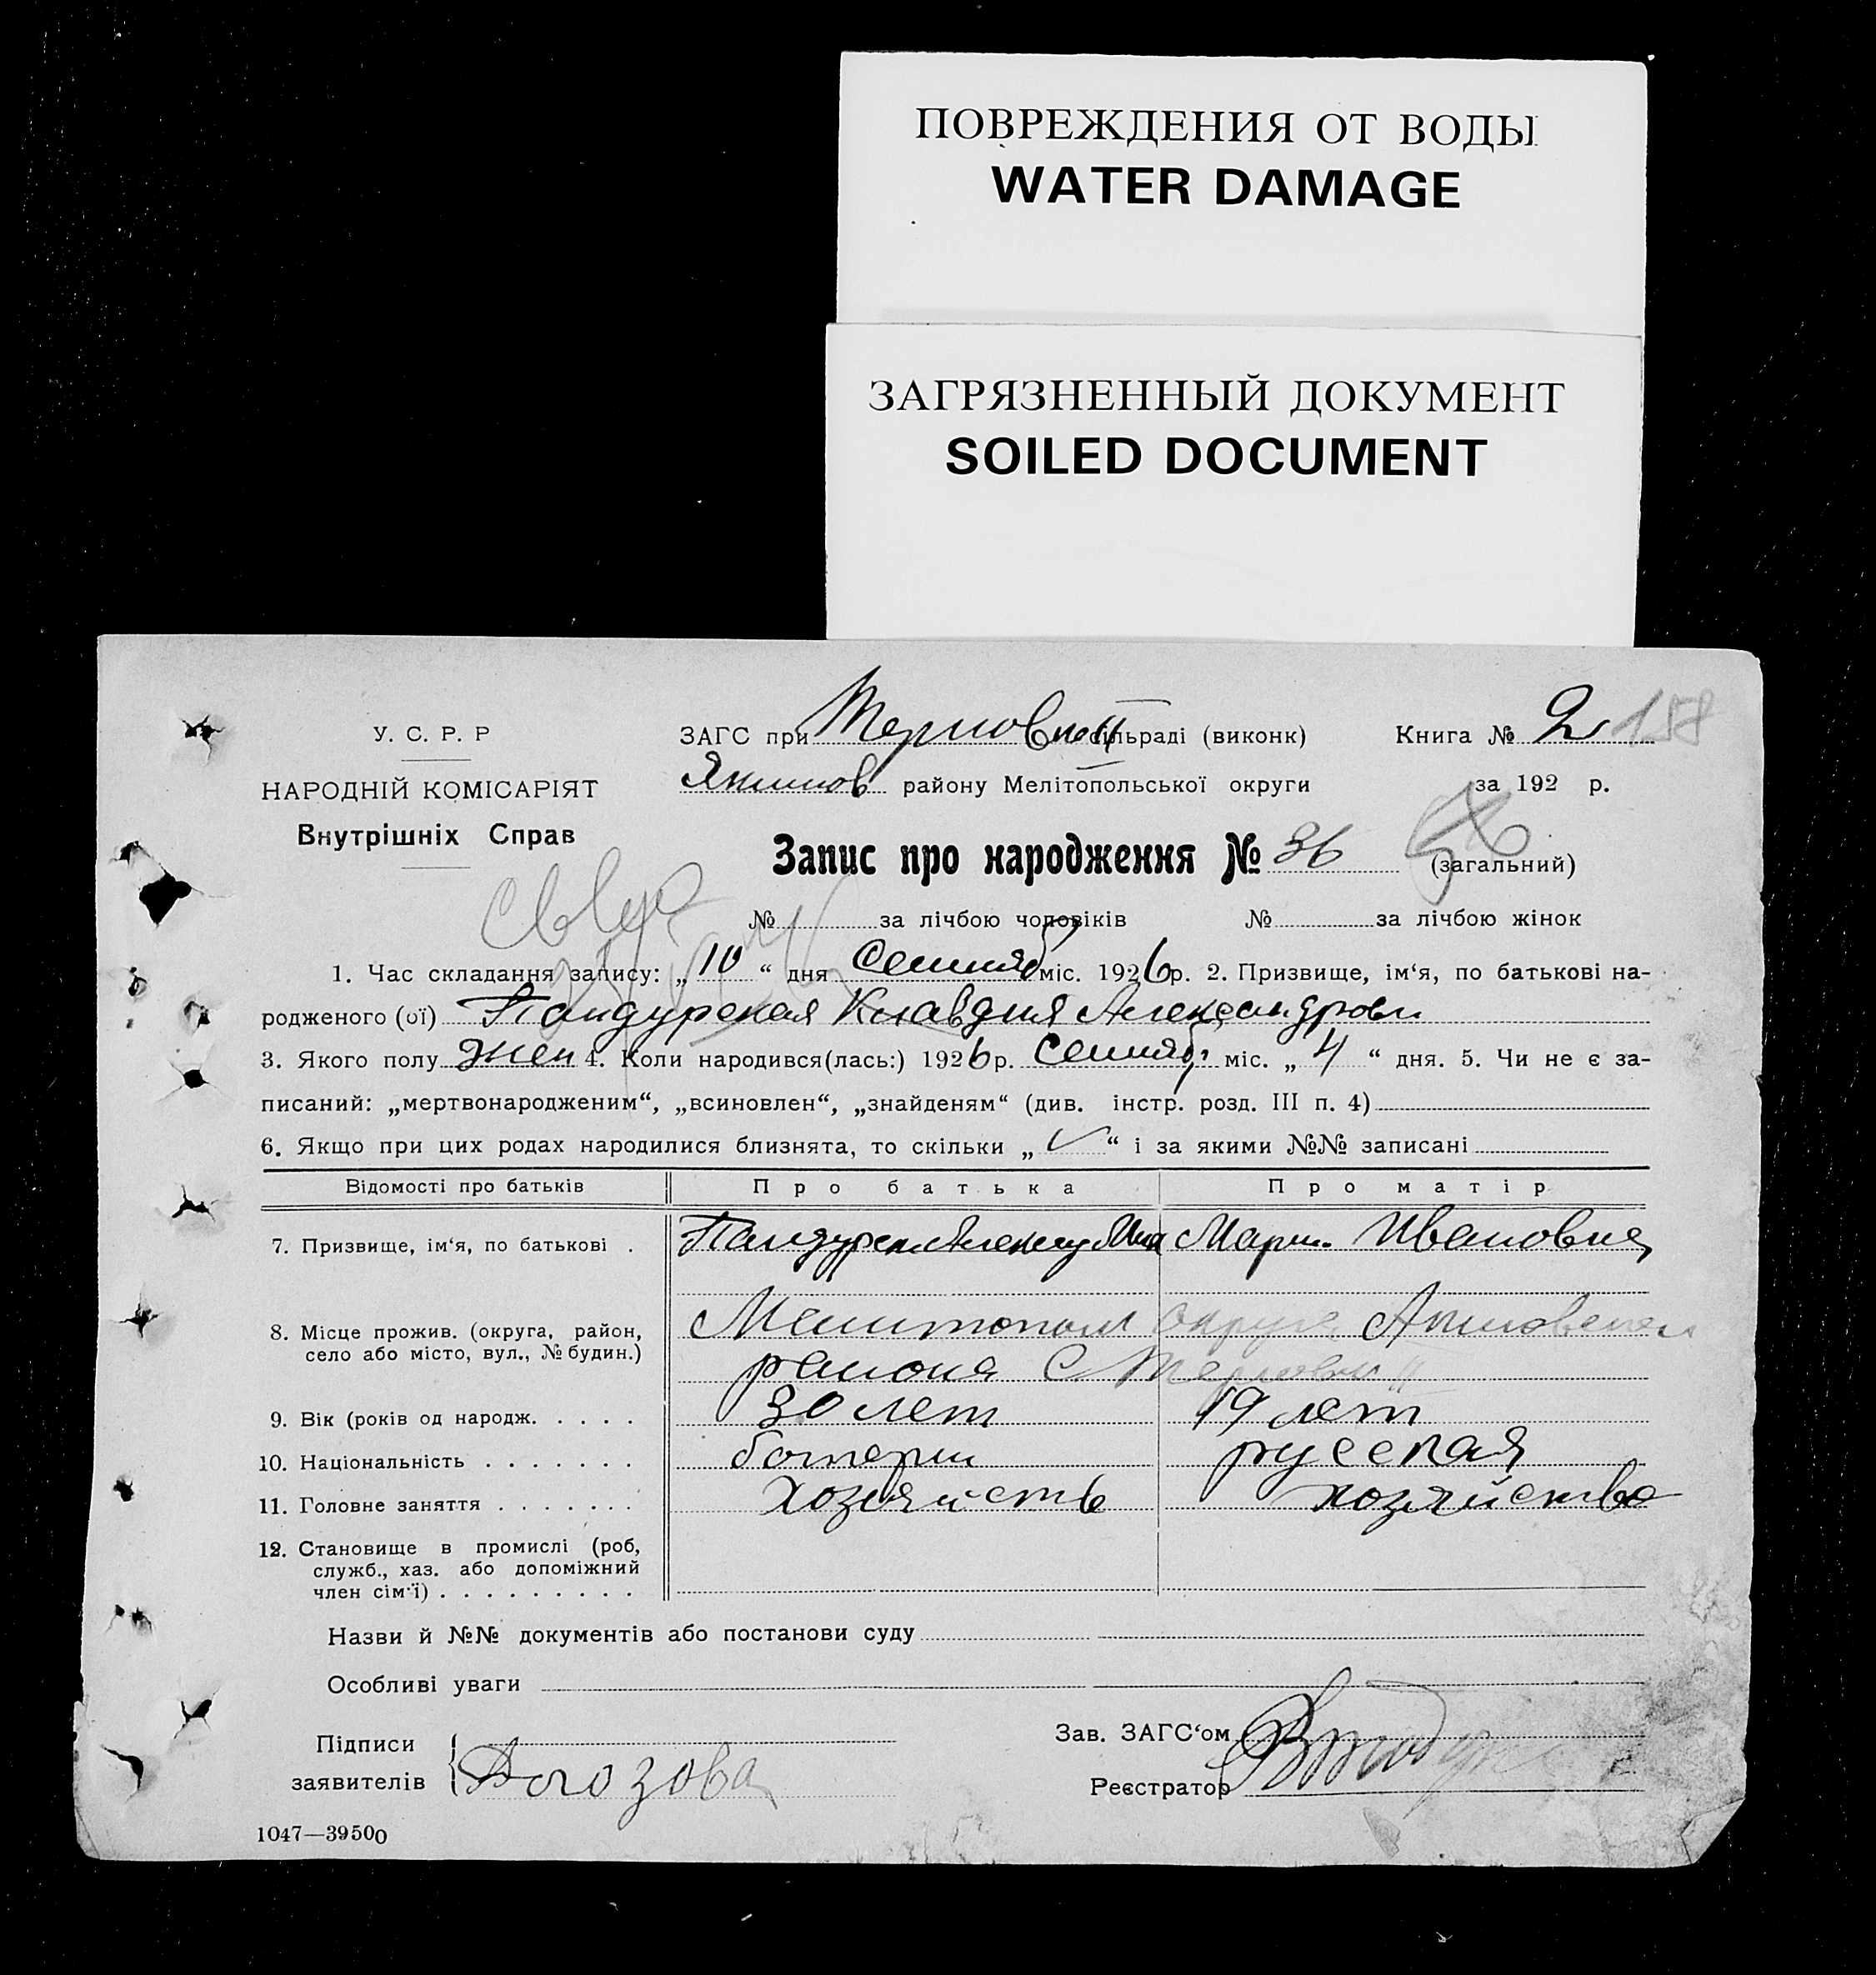 ПОВРЕЖДЕНИЯ ОТ ВОДЫ
WATER DAMAGE
ЗАГРЯЗНЕННЫЙ ДОКУМЕНТ
SOILED DOCUMENT
У. С. Р. Р
НАРОДНІЙ КОМІСАРІЯТ
Внутрішніх Справ
ЗАГС при сільраді (виконк)
Книга № 2 158
Якимов району Мелітопольської округи
за 192 р.
Запис про народження № 36 (загальний)
№ за лічбою чоловіків № за лічбою жінок
1. Час складання запису: „10“ дня Сентяб міс. 1926р. 2. Призвище, ім‘я, по батькові на-
родженого (ої) Пандурская Клавдия Александровн
3. Якого полу жен 4. Коли народився(лась:) 1926р. Сентяб міс. „4“ дня. 5. Чи не є за-
писаний: „мертвонародженим“, „всиновлен“, „знайденям“ (див. інстр. розд. III п. 4)
6. Якщо при цих родах народилися близнята, то скільки „ “ і за якими №№ записані
Відомості про батьків Про батька Про матір
7. Призвище, ім‘я, по батькові . Мария Ивановна
8. Місце прожив. (округа, район,
село або місто, вул., № будин.)
Мелитопол округа
района С
9. Вік (років од народж. . . . . 30 лет 19 лет
10. Національність . . . . . . . русская
11. Головне заняття . . . . . . . Хозяйств хозяйство
12. Становище в промислі (роб,
служб., хаз. або допоміжний
член сім‘ї) . . . . . . . . .
Назви й №№ документів або постанови суду
Особливі уваги
Підписи
заявителів
Зав. ЗАГС‘ом
Реєстратор
1047—39500